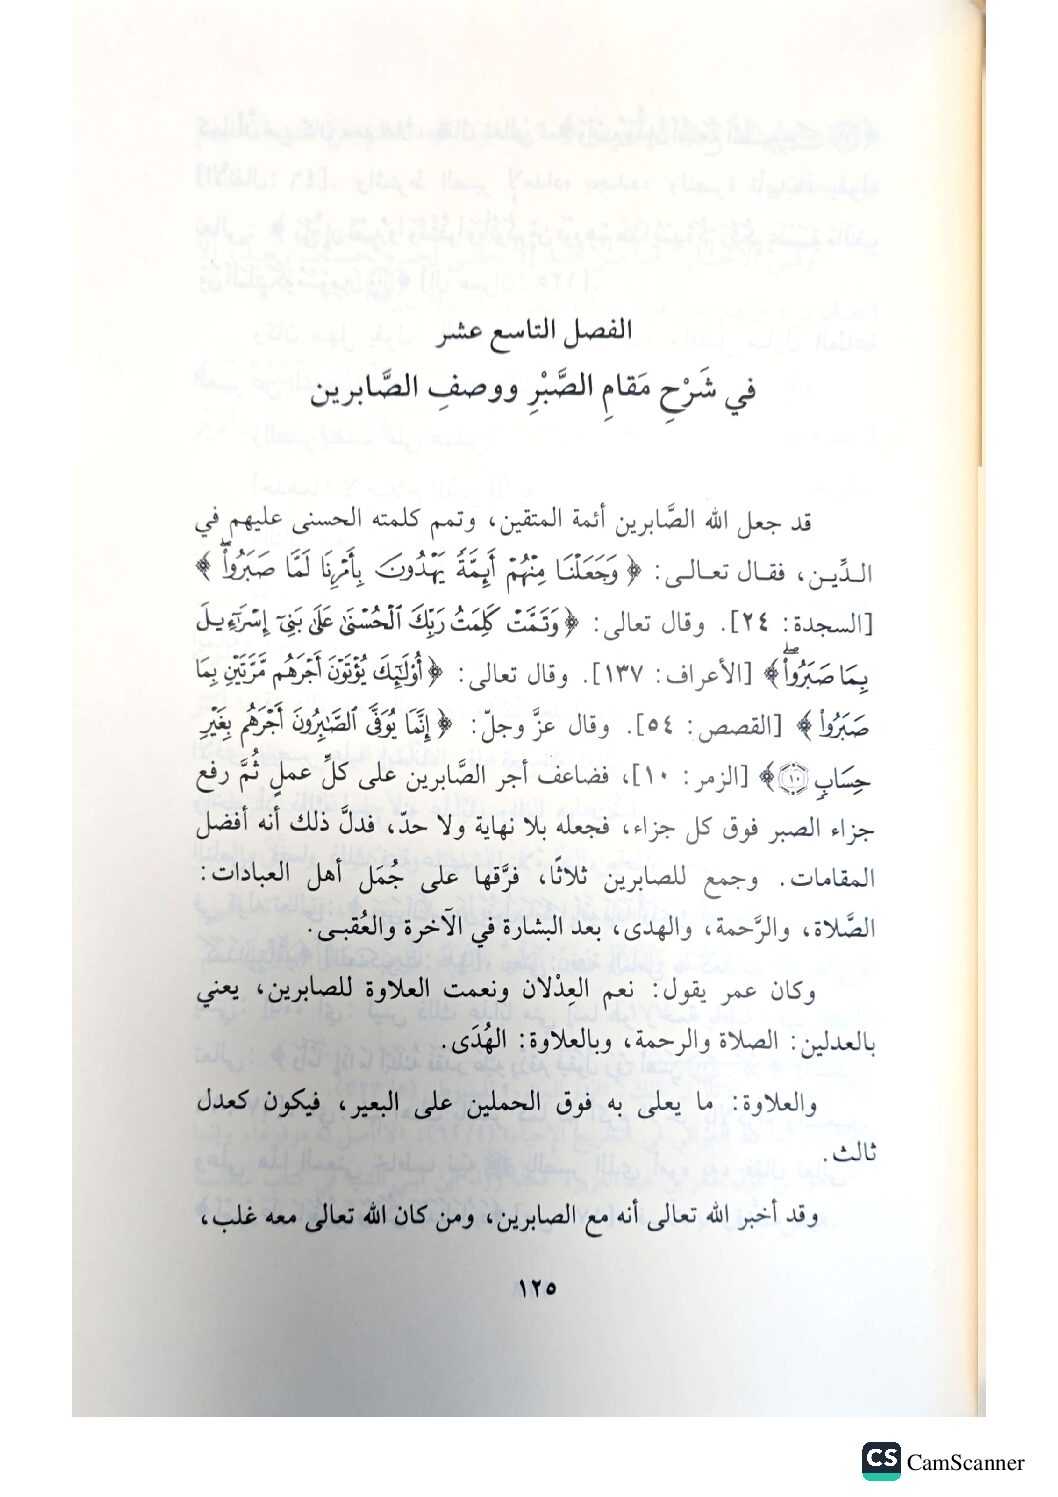 الفصل التاسع عشر
في شَرْحِ مَقامِ الصَّبْرِ ووصفِ الصَّابرين
قد جعل الله الصَّابرين أئمة المتقين، وتمم كلمته الحسنى عليهم في
الدِّين، فقال تعالى: ﴿وَجَعَلْنَا مِنْهُمْ أَئِمَّةً يَهْدُونَ بِأَمْرِنَا لَمَّا صَبَرُواْۖ﴾
[السجدة: ٢٤]. وقال تعالى: ﴿وَتَمَّتْ كَلِمَتُ رَبِّكَ ٱلْحُسْنَىٰ عَلَىٰ بَنِىٓ إِسْرَٰٓءِيلَ
بِمَا صَبَرُواْۖ﴾ [الأعراف: ١٣٧]. وقال تعالى: ﴿أُوْلَٰٓئِكَ يُؤْتَوْنَ أَجْرَهُم مَّرَّتَيْنِ بِمَا
صَبَرُواْ﴾ [القصص: ٥٤]. وقال عزَّ وجلّ: ﴿إِنَّمَا يُوَفَّى ٱلصَّٰبِرُونَ أَجْرَهُم بِغَيْرِ
حِسَابٍ ١٠﴾ [الزمر: ١٠]، فضاعف أجر الصَّابرين على كلِّ عملٍ ثُمَّ رفع
جزاء الصبر فوق كل جزاء، فجعله بلا نهاية ولا حدّ، فدلَّ ذلك أنه أفضل
المقامات. وجمع للصابرين ثلاثًا، فرَّقها على جُمَل أهل العبادات:
الصَّلاة، والرَّحمة، والهدى، بعد البشارة في الآخرة والعُقبى.
وكان عمر يقول: نعم العِدْلان ونعمت العلاوة للصابرين، يعني
بالعدلين: الصلاة والرحمة، وبالعلاوة: الهُدَى.
والعلاوة: ما يعلى به فوق الحملين على البعير، فيكون كعدل
ثالث.
وقد أخبر الله تعالى أنه مع الصابرين، ومن كان الله تعالى معه غلب،
١٢٥
CS CamScanner